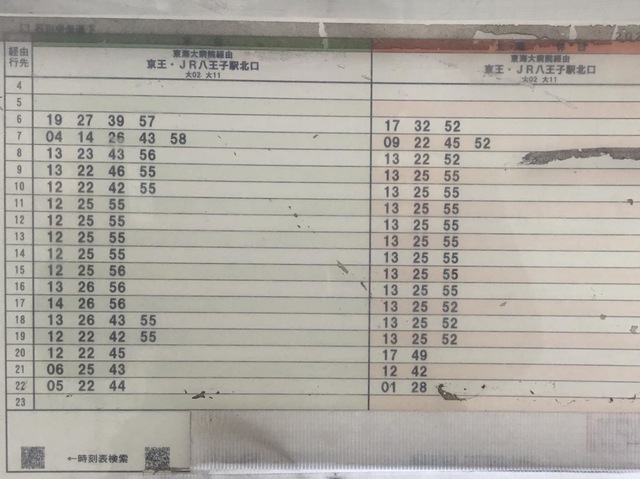 経由 東海大病院経由 東海大病院経由
行先 京王・JR八王子駅北口 京王・JR八王子駅北口
大02 大11 大02 大11
4
5
6 19 27 39 57 17 32 52
7 04 14 26 43 58 09 22 45 52
8 13 23 43 56 13 22 52
9 13 22 46 55 13 25 55
10 12 22 42 55 13 25 55
11 12 25 55 13 25 55
12 12 25 55 13 25 55
13 12 25 55 13 25 55
14 12 25 55 13 25 55
15 12 25 56 13 25 55
16 13 26 56 13 25 55
17 14 26 56 13 25 52
18 13 26 43 55 13 25 52
19 12 22 42 55 13 25 52
20 12 22 45 17 49
21 06 25 43 12 42
22 05 22 44 01 28
23
←時刻表検索